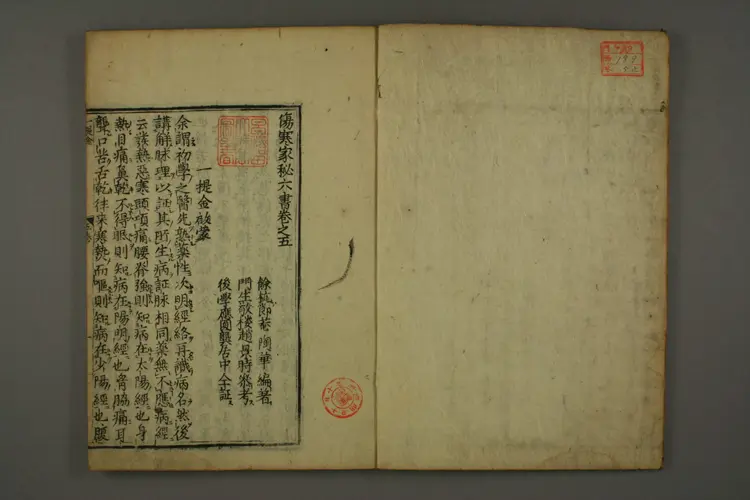 傷寒家秘六書卷之五
餘杭節菴陶華編著
門生敬棲趙景時參考
後學應圓龔居中全証
一提金啟蒙
余謂初學之醫先熟藥性次明經絡再識病名然後
講解脉理以証其所生病証脉相同藥無不應病經
云發熱惡寒頭項痛腰脊強則知病在太陽經也身
熱目痛鼻乾不得眠則知病在陽明經也胷脇痛耳
聾口苦舌乾往來寒熱而嘔則知病在少陽經也腹